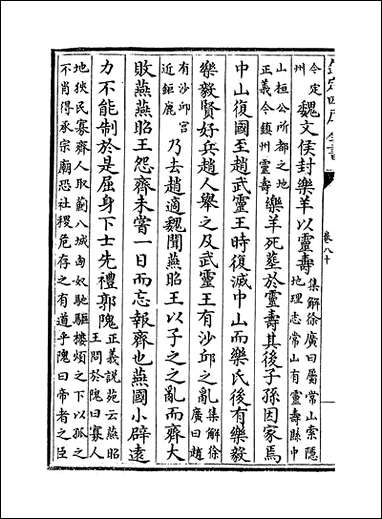 卷八十
今定州魏文侯封樂羊以靈壽集解徐廣曰屬常山索隱地理志常山有靈壽縣中
山桓公所都之地正義今鎮州靈壽樂羊死葬於靈壽其後子孫因家焉
中山復國至趙武靈王時復滅中山而樂氏後有樂毅
樂毅賢好兵趙人舉之及武靈王有沙丘之亂集解徐廣曰趙
有沙邱宮近鉅鹿乃去趙適魏聞燕昭王以子之之亂而齊大
敗燕燕昭王怨齊未嘗一日而忘報齊也燕國小辟遠
力不能制於是屈身下士先禮郭隗正義說苑云燕昭王問於隗曰寡人
地狹民寡齊人取薊八城匈奴馳驅樓煩之下以孤之不肖得承宗廟恐社稷危存之有道乎隗曰帝者之臣